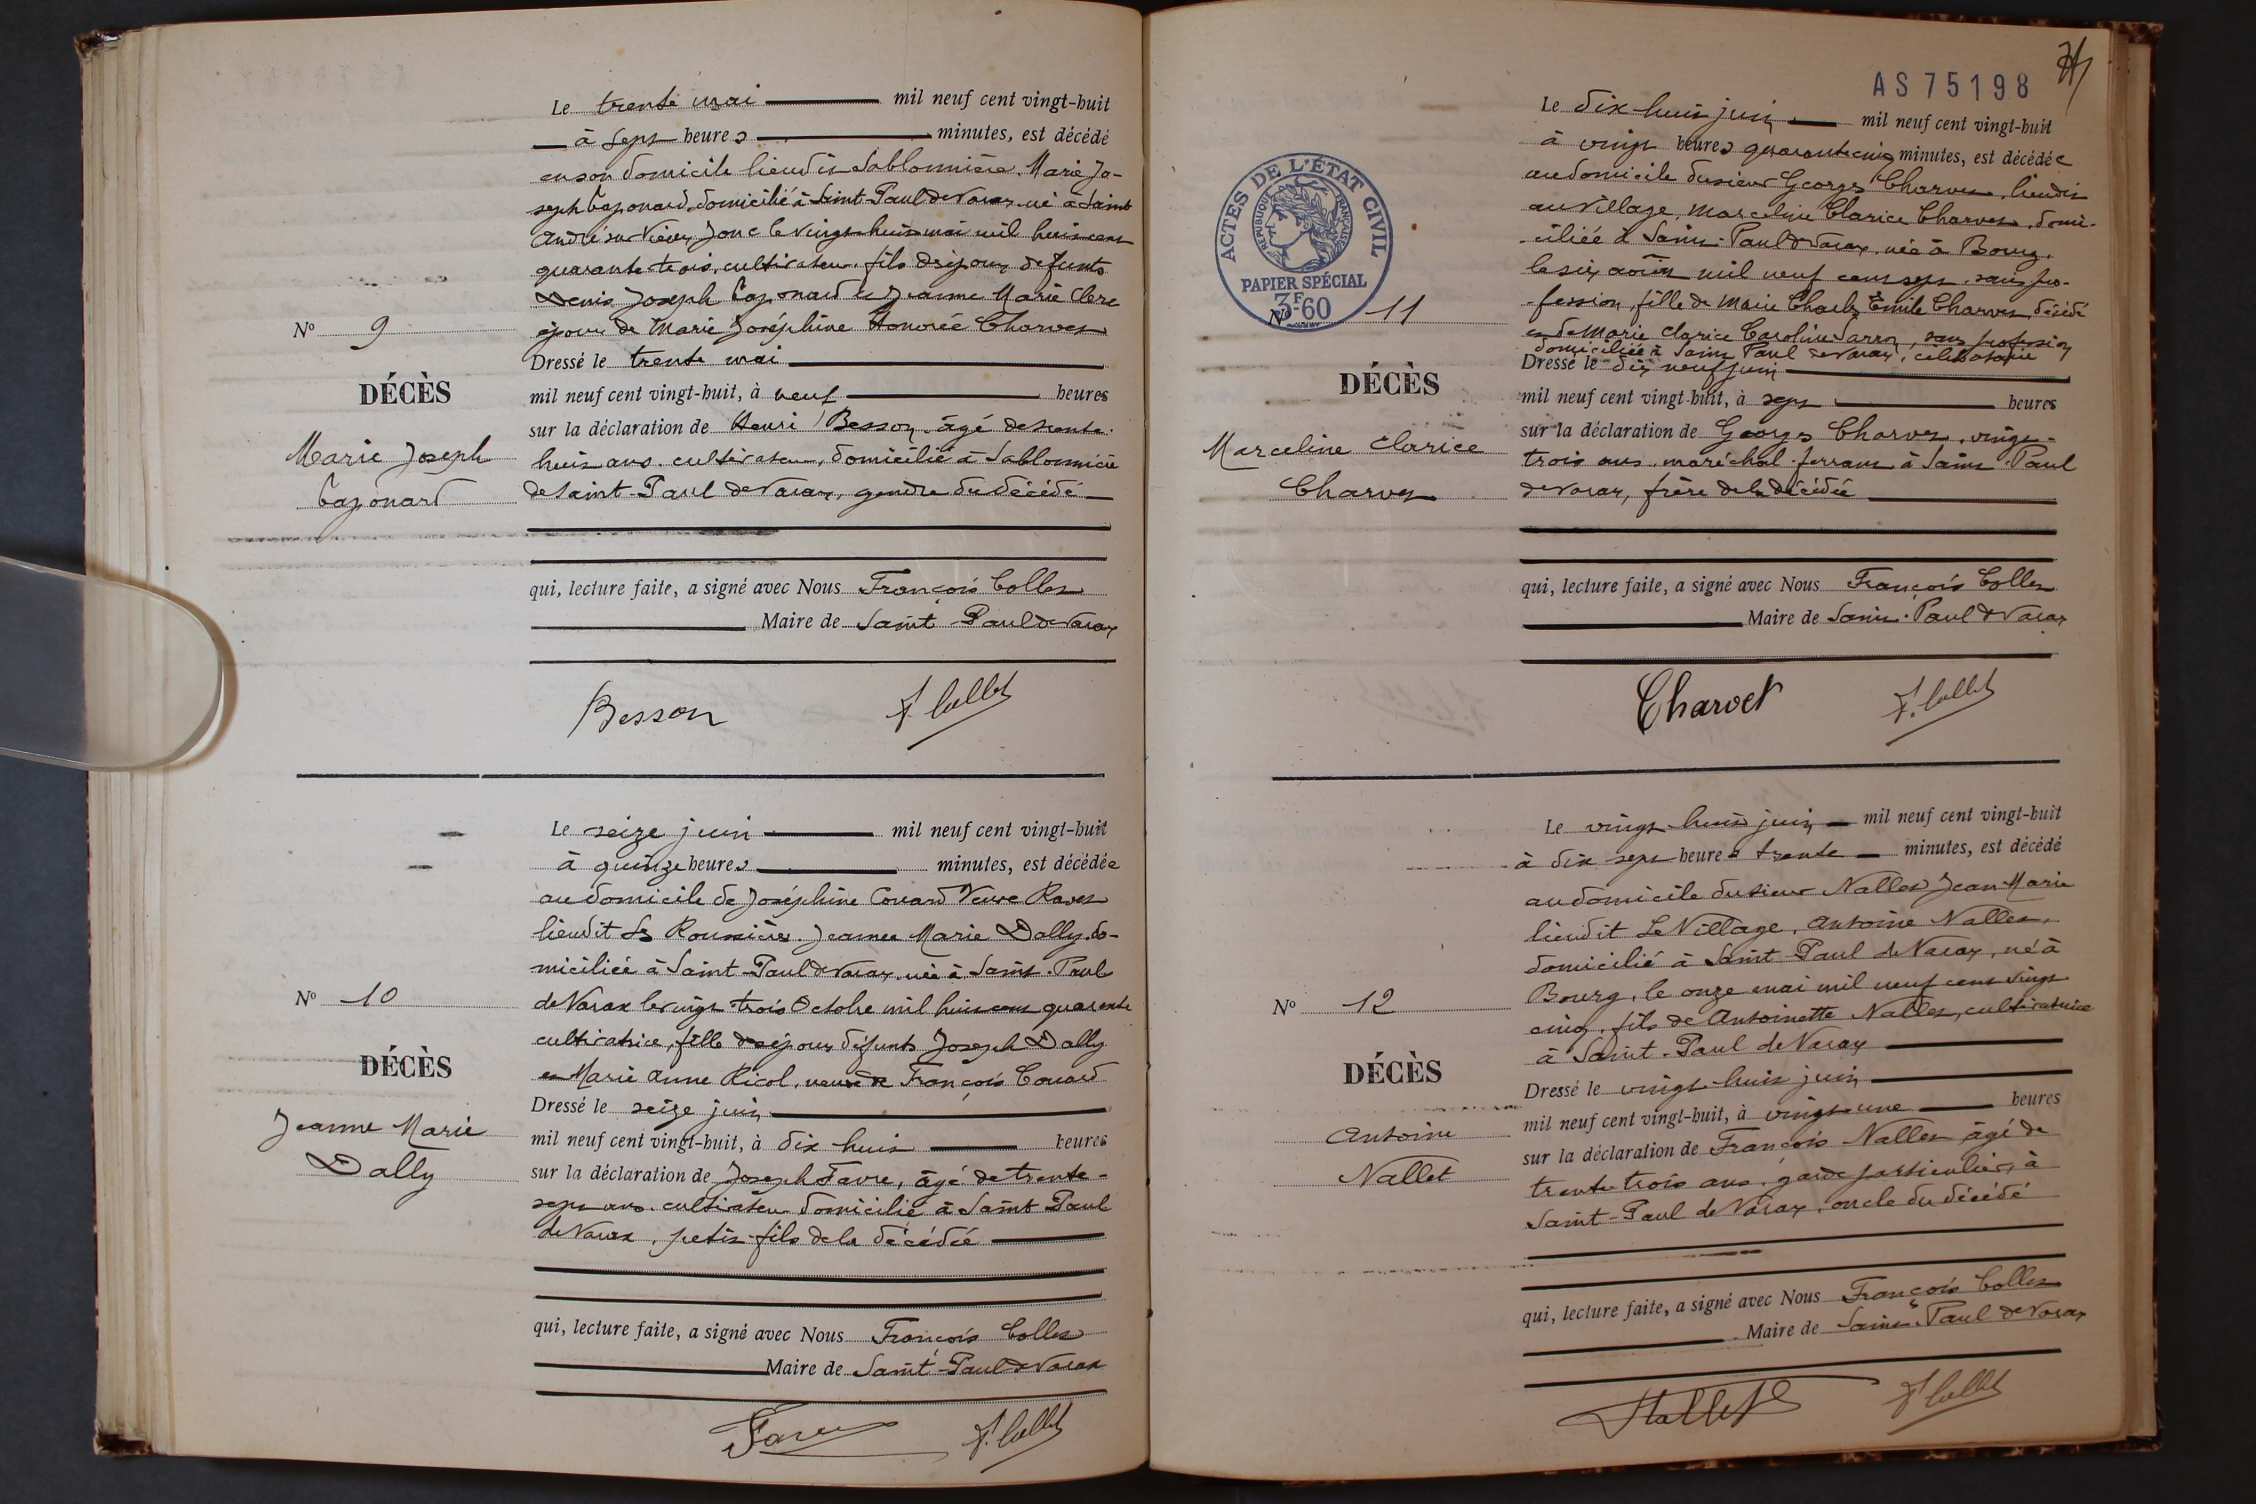 Le trente mai mil neuf cent vingt-huit
à sept heures minutes, est décédé
en son domicile lieudit Sablonnière. Marie Jo-
seph Cazonard, domicilié à Saint-Paul de Varax né à Saint
André sur Vieux Jonc le vingt huit mai mil huit cent
quarante trois, cultivateur, fils des époux défunts
Denis Joseph Cazonard et Jeanne Marie Clerc
époux de Marie Joséphine Honorée Charvet
Dressé le trente mai
mil neuf cent vingt-huit, à neuf heures
sur la déclaration de Henri Besson, âgé de trente
huit ans, cultivateur, domicilié à Sablonnière
de Saint-Paul de Varax, gendre du décédé
qui, lecture faite, a signé avec Nous François Collet
Maire de Saint Paul de Varax
Besson F. Collet
Nº 9
DÉCÈS
Marie Joseph
Cazonard
Le seize juin mil neuf cent vingt-huit
à quinze heures minutes, est décédée
au domicile de Joséphine Couard Veuve Ravet
lieudit Les Roussières. Jeanne Marie Dally, do-
miciliée à Saint-Paul de Varax née à Saint-Paul
de Varax le vingt-trois Octobre mil huit cent quarante
cultivatrice, fille des époux défunts Joseph Dally
et Marie Anne Ricol, veuve de François Couard
Dressé le seize juin
mil neuf cent vingt-huit, à dix huit heures
sur la déclaration de Joseph Favre, âgé de trente-
sept ans, cultivateur domicilié à Saint Paul
de Varax, petit-fils de la décédée
qui, lecture faite, a signé avec Nous François Collet
Maire de Saint-Paul de Varax
Favre F. Collet
Nº 10
DÉCÈS
Jeanne Marie
Dally
AS75198
ACTES DE L'ÉTAT CIVIL
RÉPUBLIQUE FRANÇAISE
PAPIER SPÉCIAL
3F60
Le dix huit juin mil neuf cent vingt-huit
à vingt heures quarante cinq minutes, est décédée
au domicile du sieur Georges Charvet, lieudit
au Village, Marceline Clarice Charvet, domi-
ciliée à Saint-Paul de Varax, née à Bourg,
le six août mil neuf cent sept, sans pro-
fession, fille de Marie Charles Emile Charvet, décédé
et de Marie Clarice Caroline Sarron, sans profession
domiciliée à Saint Paul de Varax, célibataire
Dressé le dix neuf juin
mil neuf cent vingt-huit, à sept heures
sur la déclaration de Georges Charvet, vingt-
trois ans, maréchal-ferrant à Saint-Paul
de Varax, frère de la décédée
qui, lecture faite, a signé avec Nous François Collet
Maire de Saint-Paul de Varax
Charvet F. Collet
Nº 11
DÉCÈS
Marceline Clarice
Charvet
Le vingt huit juin mil neuf cent vingt-huit
à dix sept heures trente minutes, est décédé
au domicile du sieur Nallet Jean-Marie
lieudit Le Village, Antoine Nallet,
domicilié à Saint-Paul de Varax, né à
Bourg, le onze mai mil neuf cent vingt
cinq, fils de Antoinette Nallet, cultivatrice
à Saint-Paul de Varax
Dressé le vingt-huit juin
mil neuf cent vingt-huit, à vingt-une heures
sur la déclaration de François Nallet âgé de
trente-trois ans, garde particulier, à
Saint-Paul de Varax, oncle du décédé
qui, lecture faite, a signé avec Nous François Collet
Maire de Saint-Paul de Varax
Nallet F. Collet
Nº 12
DÉCÈS
Antoine
Nallet